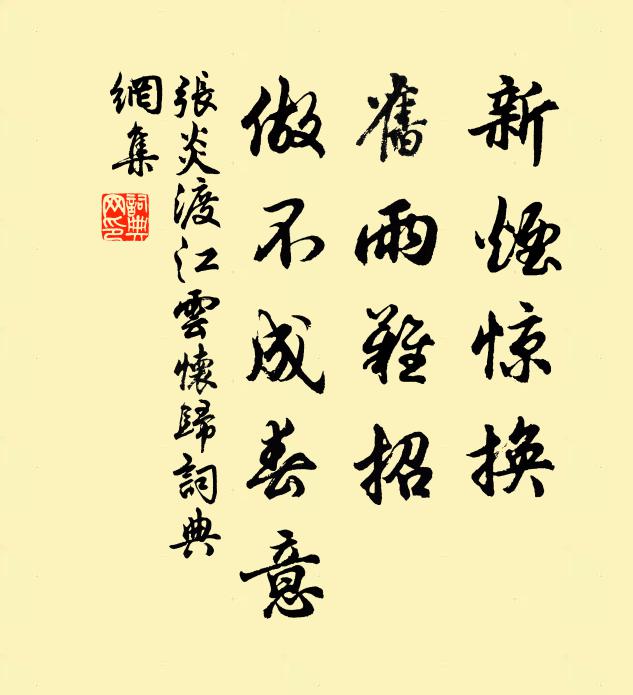 新煙惊换
舊雨難招
做不成春意
張炎渡江雲懷歸詞典
網集
詞典网印